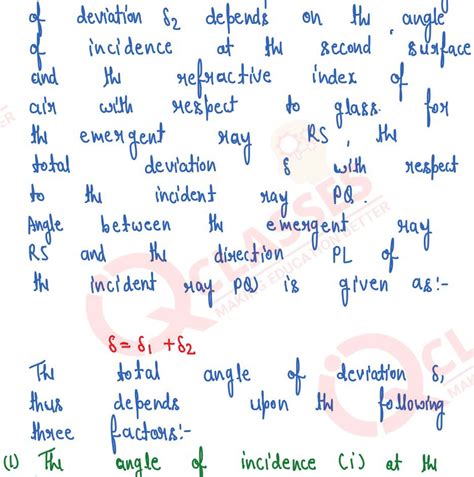 of deviation δ2 depends on the angle
of incidence at the second surface
and the refractive index of
air with respect to glass. for
the emergent ray RS, the
total deviation δ with respect
to the incident ray PQ.
Angle between the emergent ray
RS and the direction PL of
the incident ray PQ is given as:-
δ = δ1 + δ2
The total angle of deviation δ,
thus depends upon the following
three factors:-
(1) The angle of incidence (i) at the
CLASSES
MAKING EDUCATION BETTER